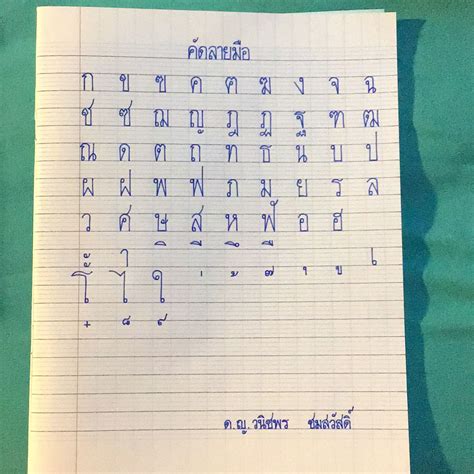 คัดลายมือ
ก ข ฃ ค ฅ ฆ ง จ ฉ
ช ซ ฌ ญ ฎ ฏ ฐ ฑ ฒ
ณ ด ต ถ ท ธ น บ ป
ผ ฝ พ ฟ ภ ม ย ร ล
ว ศ ษ ส ห ฬ อ ฮ
ะ า ิ ี ึ ื ่ ้ ๗ ุ ู เ
โ ไ ใ
+ ๘ ๙
ด.ญ. วนิชพร ชมสวัสดิ์